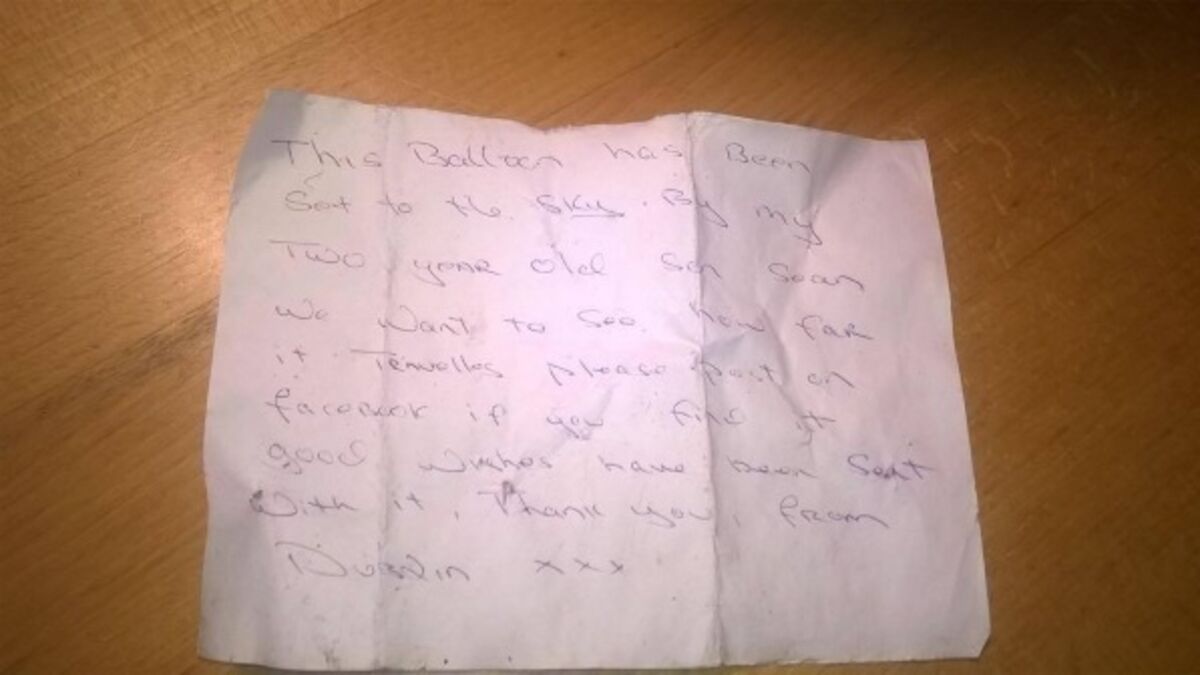 This Balloon has Been
Sent to the SKy. By my
Two year old son Sean
we want to see how far
it Travelles please post on
facebook if you find it
good wishes have been Sent
With it. Thank you, from
Dublin xxx